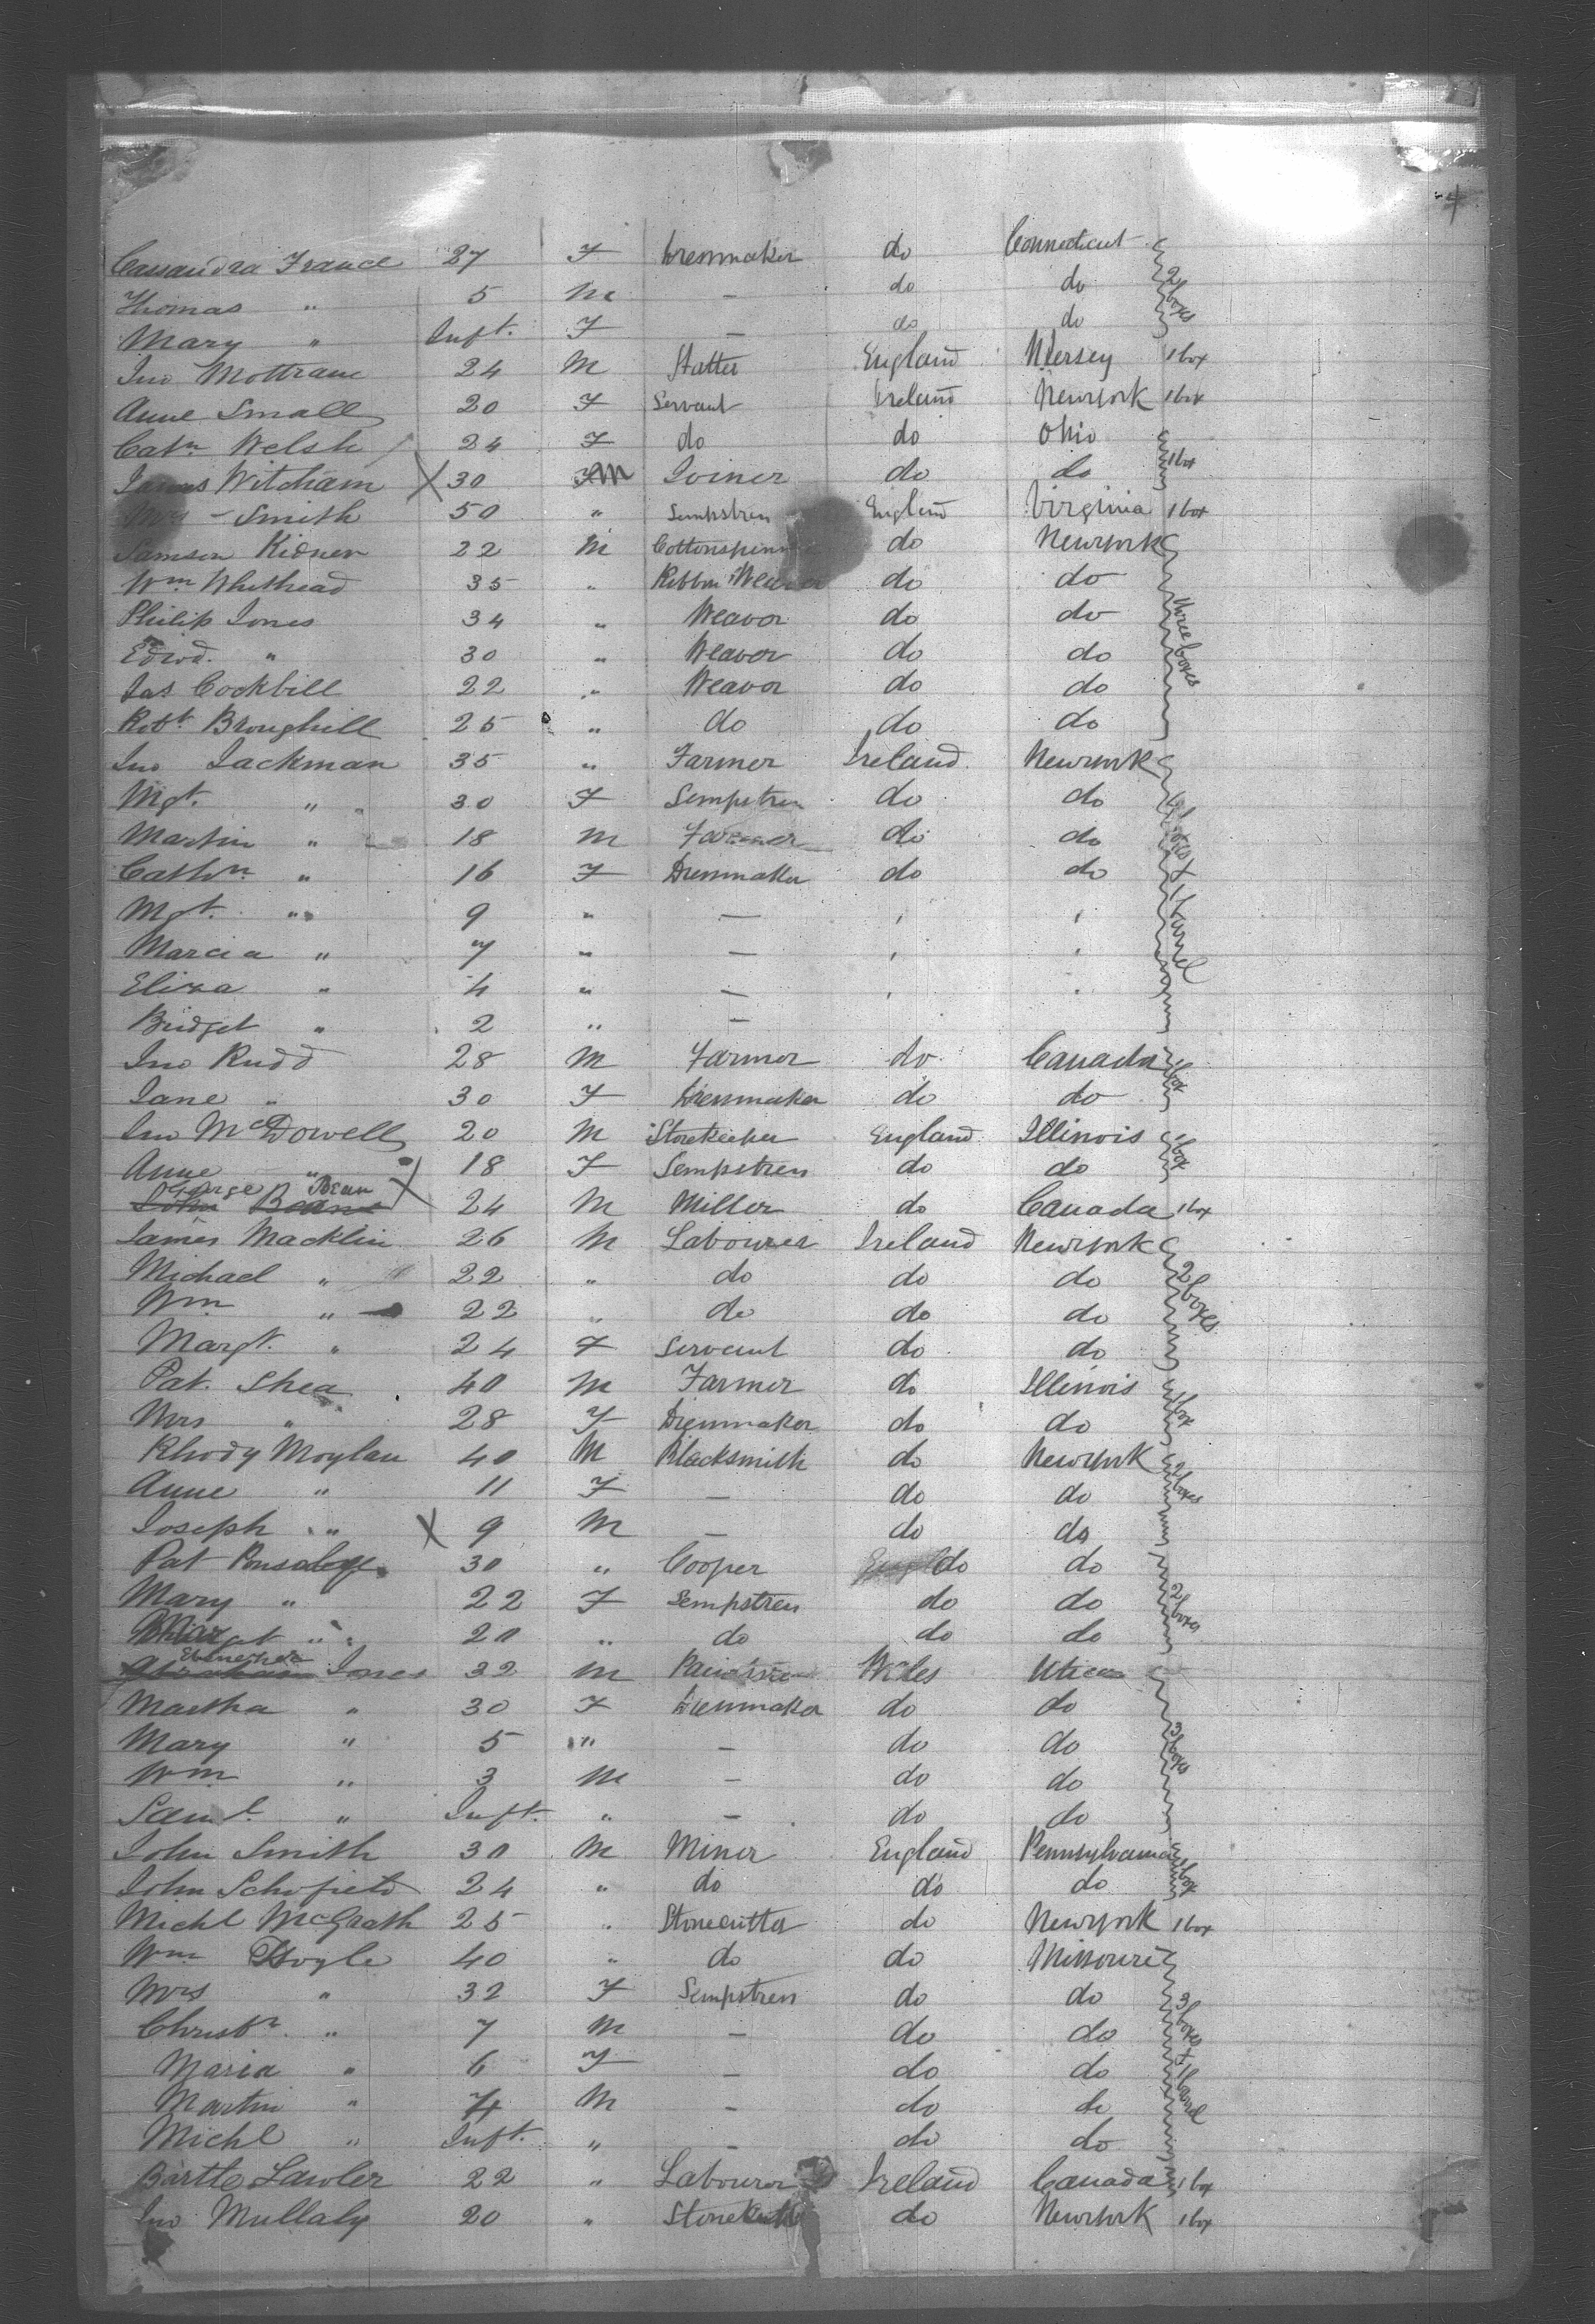 4
Cassandra France 27 F Dressmaker do Connecticut
Thomas " 5 M — do do 2 boxes
Mary " Inft. F — do do
Jno Mottram 24 M Hatter England NJersey 1 box
Anne Small 20 F Servant Ireland Newyork 1 box
Cathn Welsh 24 F do do Ohio
James Witcham X 30 M Joiner do do 1 box
Mrs - Smith 50 " Sempstress England Virginia 1 box
Samson Kidner 22 M Cottonspinn do Newyork
Wm Whithead 35 " Ribbon Weaver do do
Philip Jones 34 " Weavor do do three boxes
Edwd. " 30 " Weavor do do
Jas Cockbill 22 " Weavor do do
Robt Broughill 25 " do do do
Jno Jackman 35 " Farmer Ireland Newyork
Mgt. " 30 F Sempstress do do 4 boxes + 1 barrel
Martin " 18 M Farmer do do
Cathn " 16 F Dressmaker do do
Mgt. " 9 " — " "
Marcia " 7 " — " "
Eliza " 4 " — " "
Bridget " 2 " —
Jno Rudd 28 M Farmor do Canada 1 box
Jane " 30 F Dressmaker do do
Jno McDowell 20 M Storekeeper England Illinois 1 box
Anne " 18 F Sempstress do do
George Bean X 24 M Miller do Canada 1 box
James Macklin 26 M Labourer Ireland Newyork
Michael " 22 " do do do 2 boxes
Wm " 22 " do do do
Margt. " 24 F Servant do do
Pat. Shea 40 M Farmer do Illinois 1 box
Mrs " 28 F Dressmaker do do
Rhody Moylan 40 M Blacksmith do Newyork 2 boxes
Anne " 11 F — do do
Joseph " X 9 M — do do
Pat 30 " Cooper do do
Mary " 22 F Sempstress do do 2 boxes
" 20 " do do do
Ebenezer Jones 32 M Wales Utica
Martha " 30 F Dressmaker do do
Mary " 5 " — do do 3 boxes
Wm " 3 M — do do
Saml. " Inft. " — do do
John Smith 30 M Miner England Pennsylvania 1 box
John Schofield 24 " do do do
Michl McGrath 25 " Stonecutter do Newyork 1 box
Wm Hoyle 40 " do do Missouri
Mrs " 32 F Sempstress do do 3 boxes + 1 barrel
Christr. " 7 M — do do
Maria " 6 F — do do
Martin " 4 M — do do
Michl " Inft. " — do do
Bartle Lawler 22 " Labouror Ireland Canada 1 box
Jno Mullaly 20 " Stonecutter do Newyork 1 box